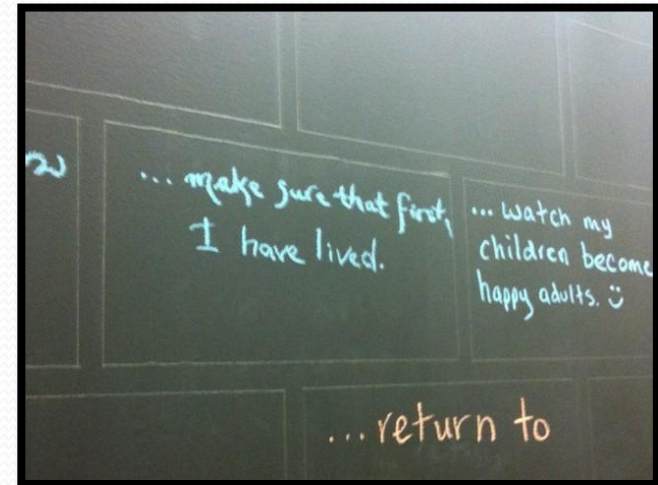 ... make sure that first,
I have lived.
... watch my
children become
happy adults. :)
...return to